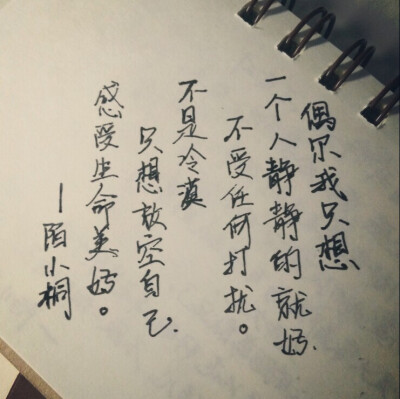 偶尔我只想
一个人静静的就好.
不受任何打扰。
不是冷漠
只想放空自己.
感受生命美好。
—陌小桐